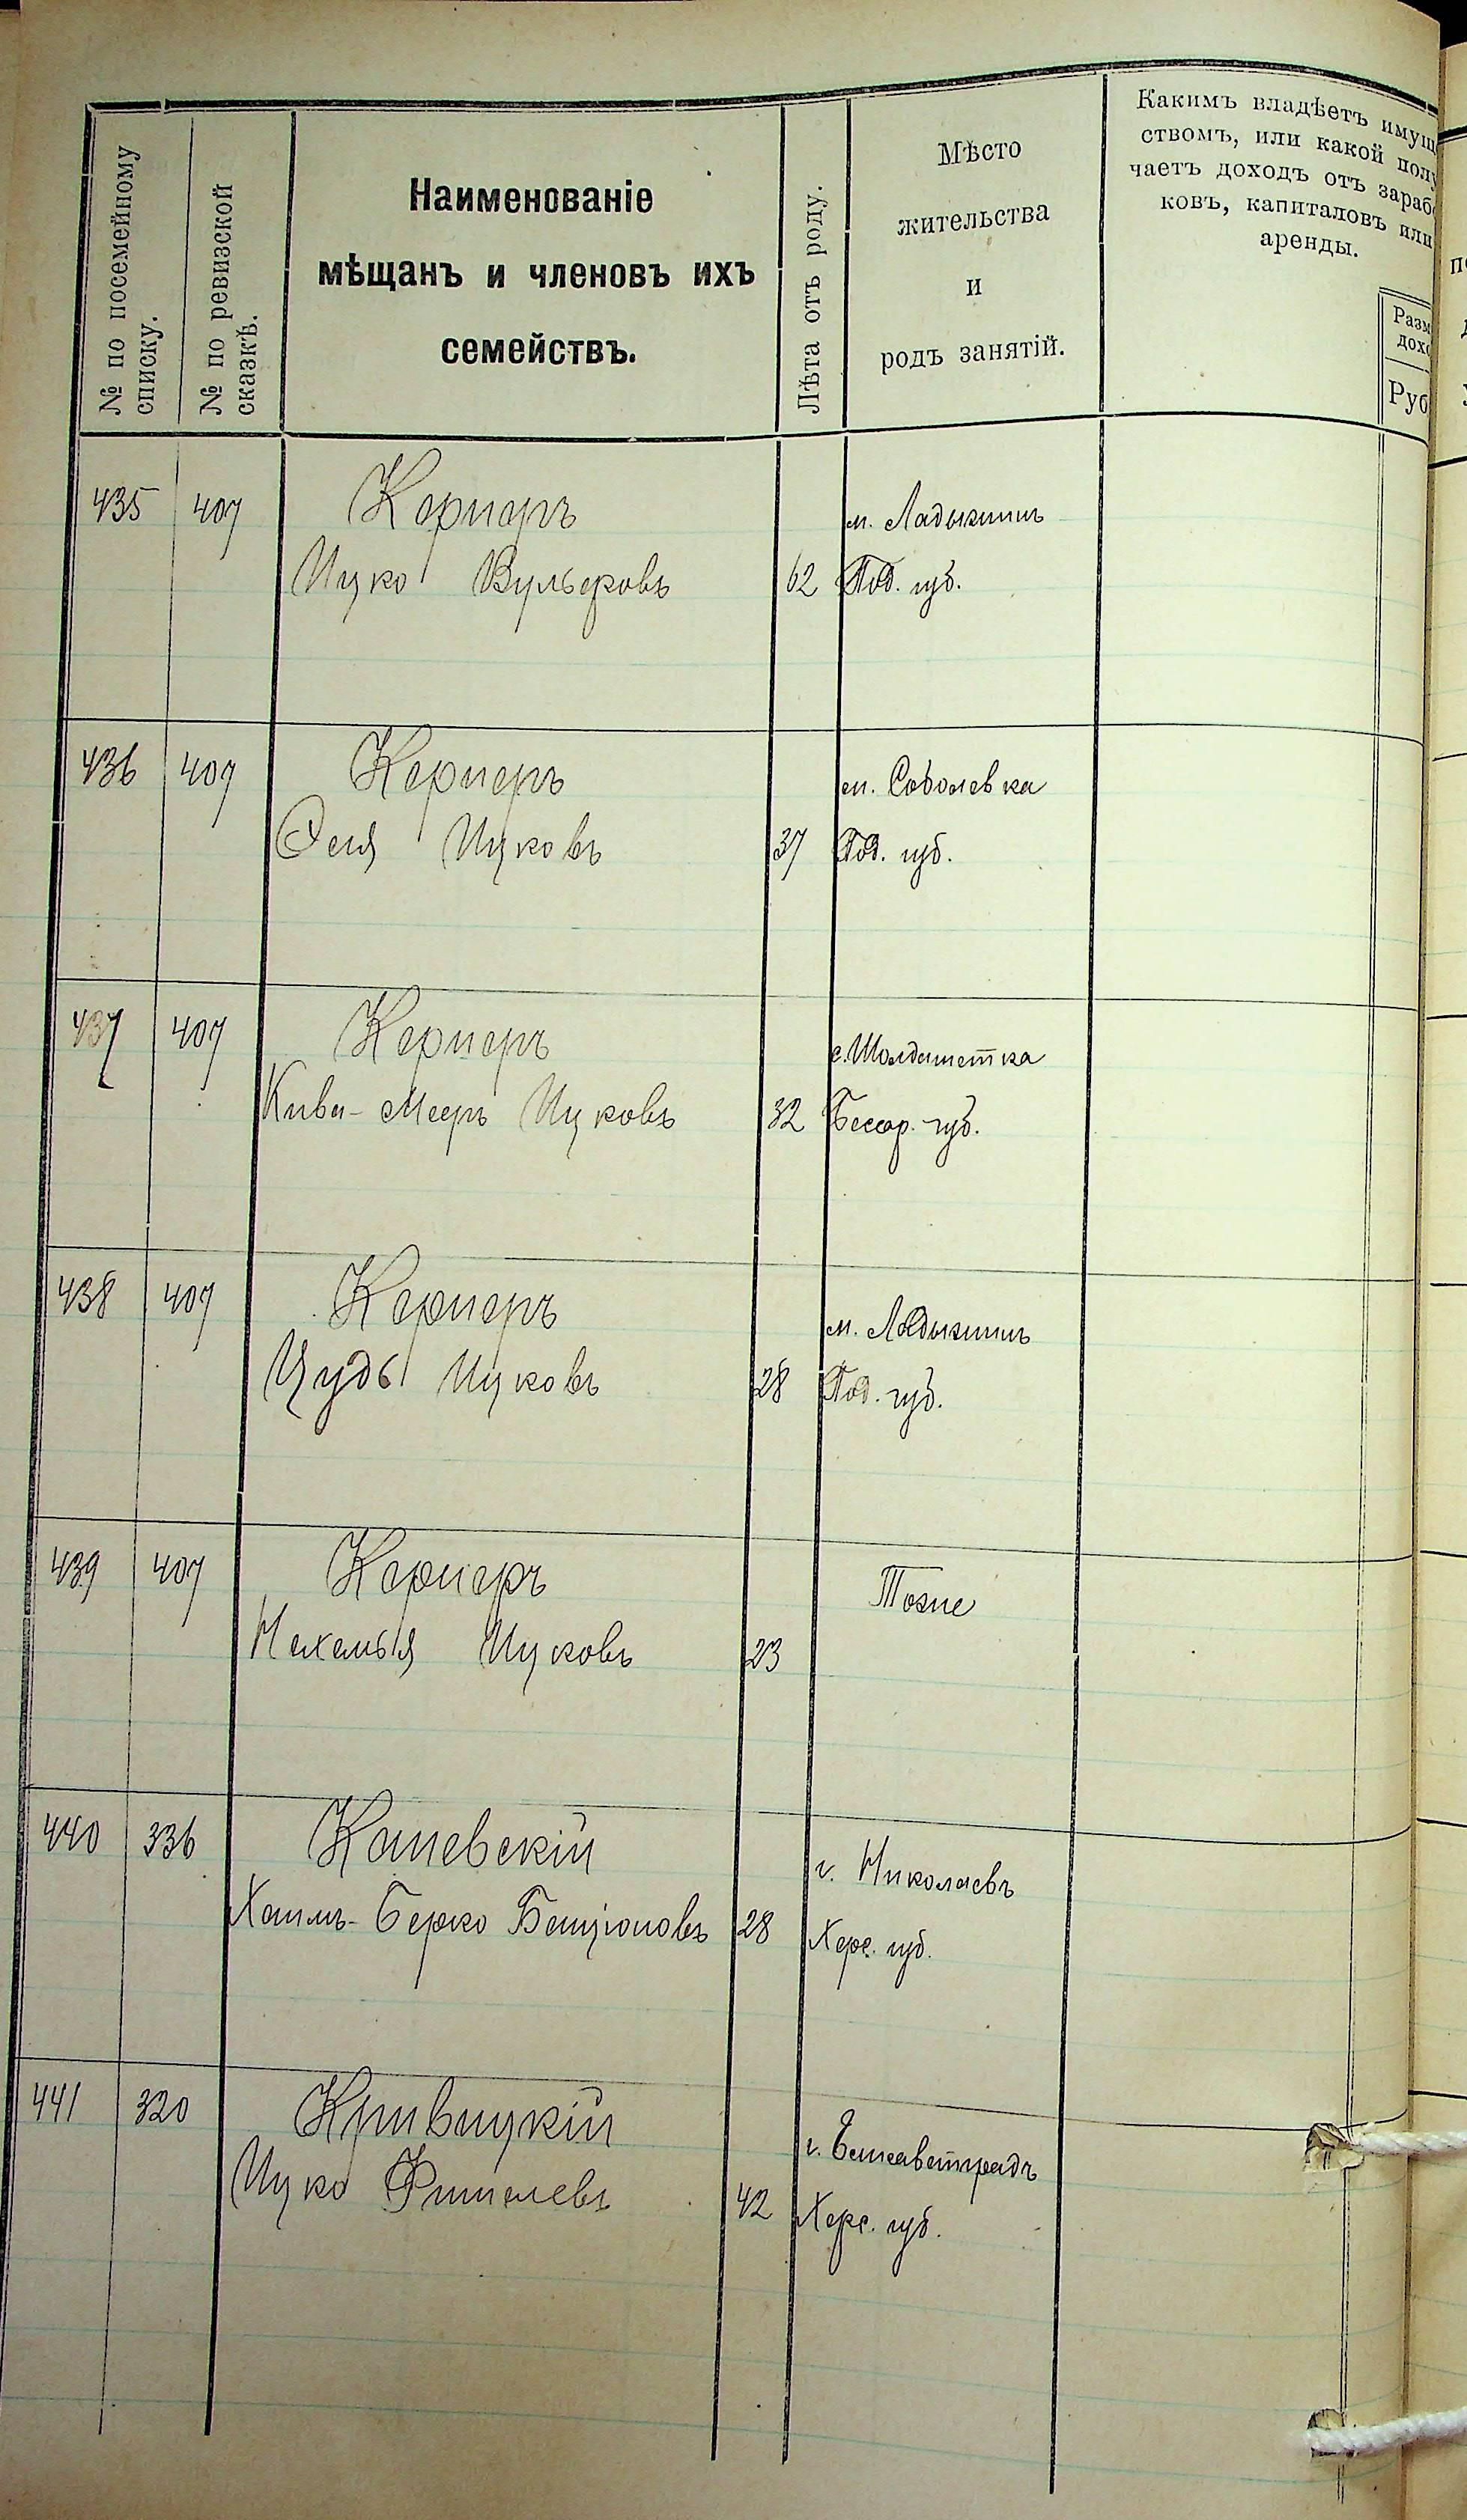 № по посемейному
списку.
№ по ревизской
сказкѣ.
Наименованіе
мѣщанъ и членовъ ихъ
семействъ.
Лѣта отъ роду.
Мѣсто
жительства
и
родъ занятій.
Какимъ владѣетъ имущ
ствомъ, или какой полу
чаетъ доходъ отъ зарабо
ковъ, капиталовъ или
аренды.
Разм
дохо
Руб
435 407 Кернеръ м. Ладыжинъ
Ицко Вульфовъ 62 Под. губ.
436 407 Кернеръ м. Соболевка
Ицковъ 37 Под. губ.
437 407 Кернеръ
Кива-Мееръ Ицковъ 32 Бессар. губ.
438 407 Кернеръ м. Ладыжинъ
Ицковъ 28 Под. губ.
439 407 Кернеръ Тоже
Нехемья Ицковъ 23
440 336 Каневскій г. Николаевъ
Хаимъ-Берко Бенціоновъ 28 Херс. губ.
441 320 Кривицкій г. Елисаветградъ
Ицко Фишелевъ 42 Херс. губ.